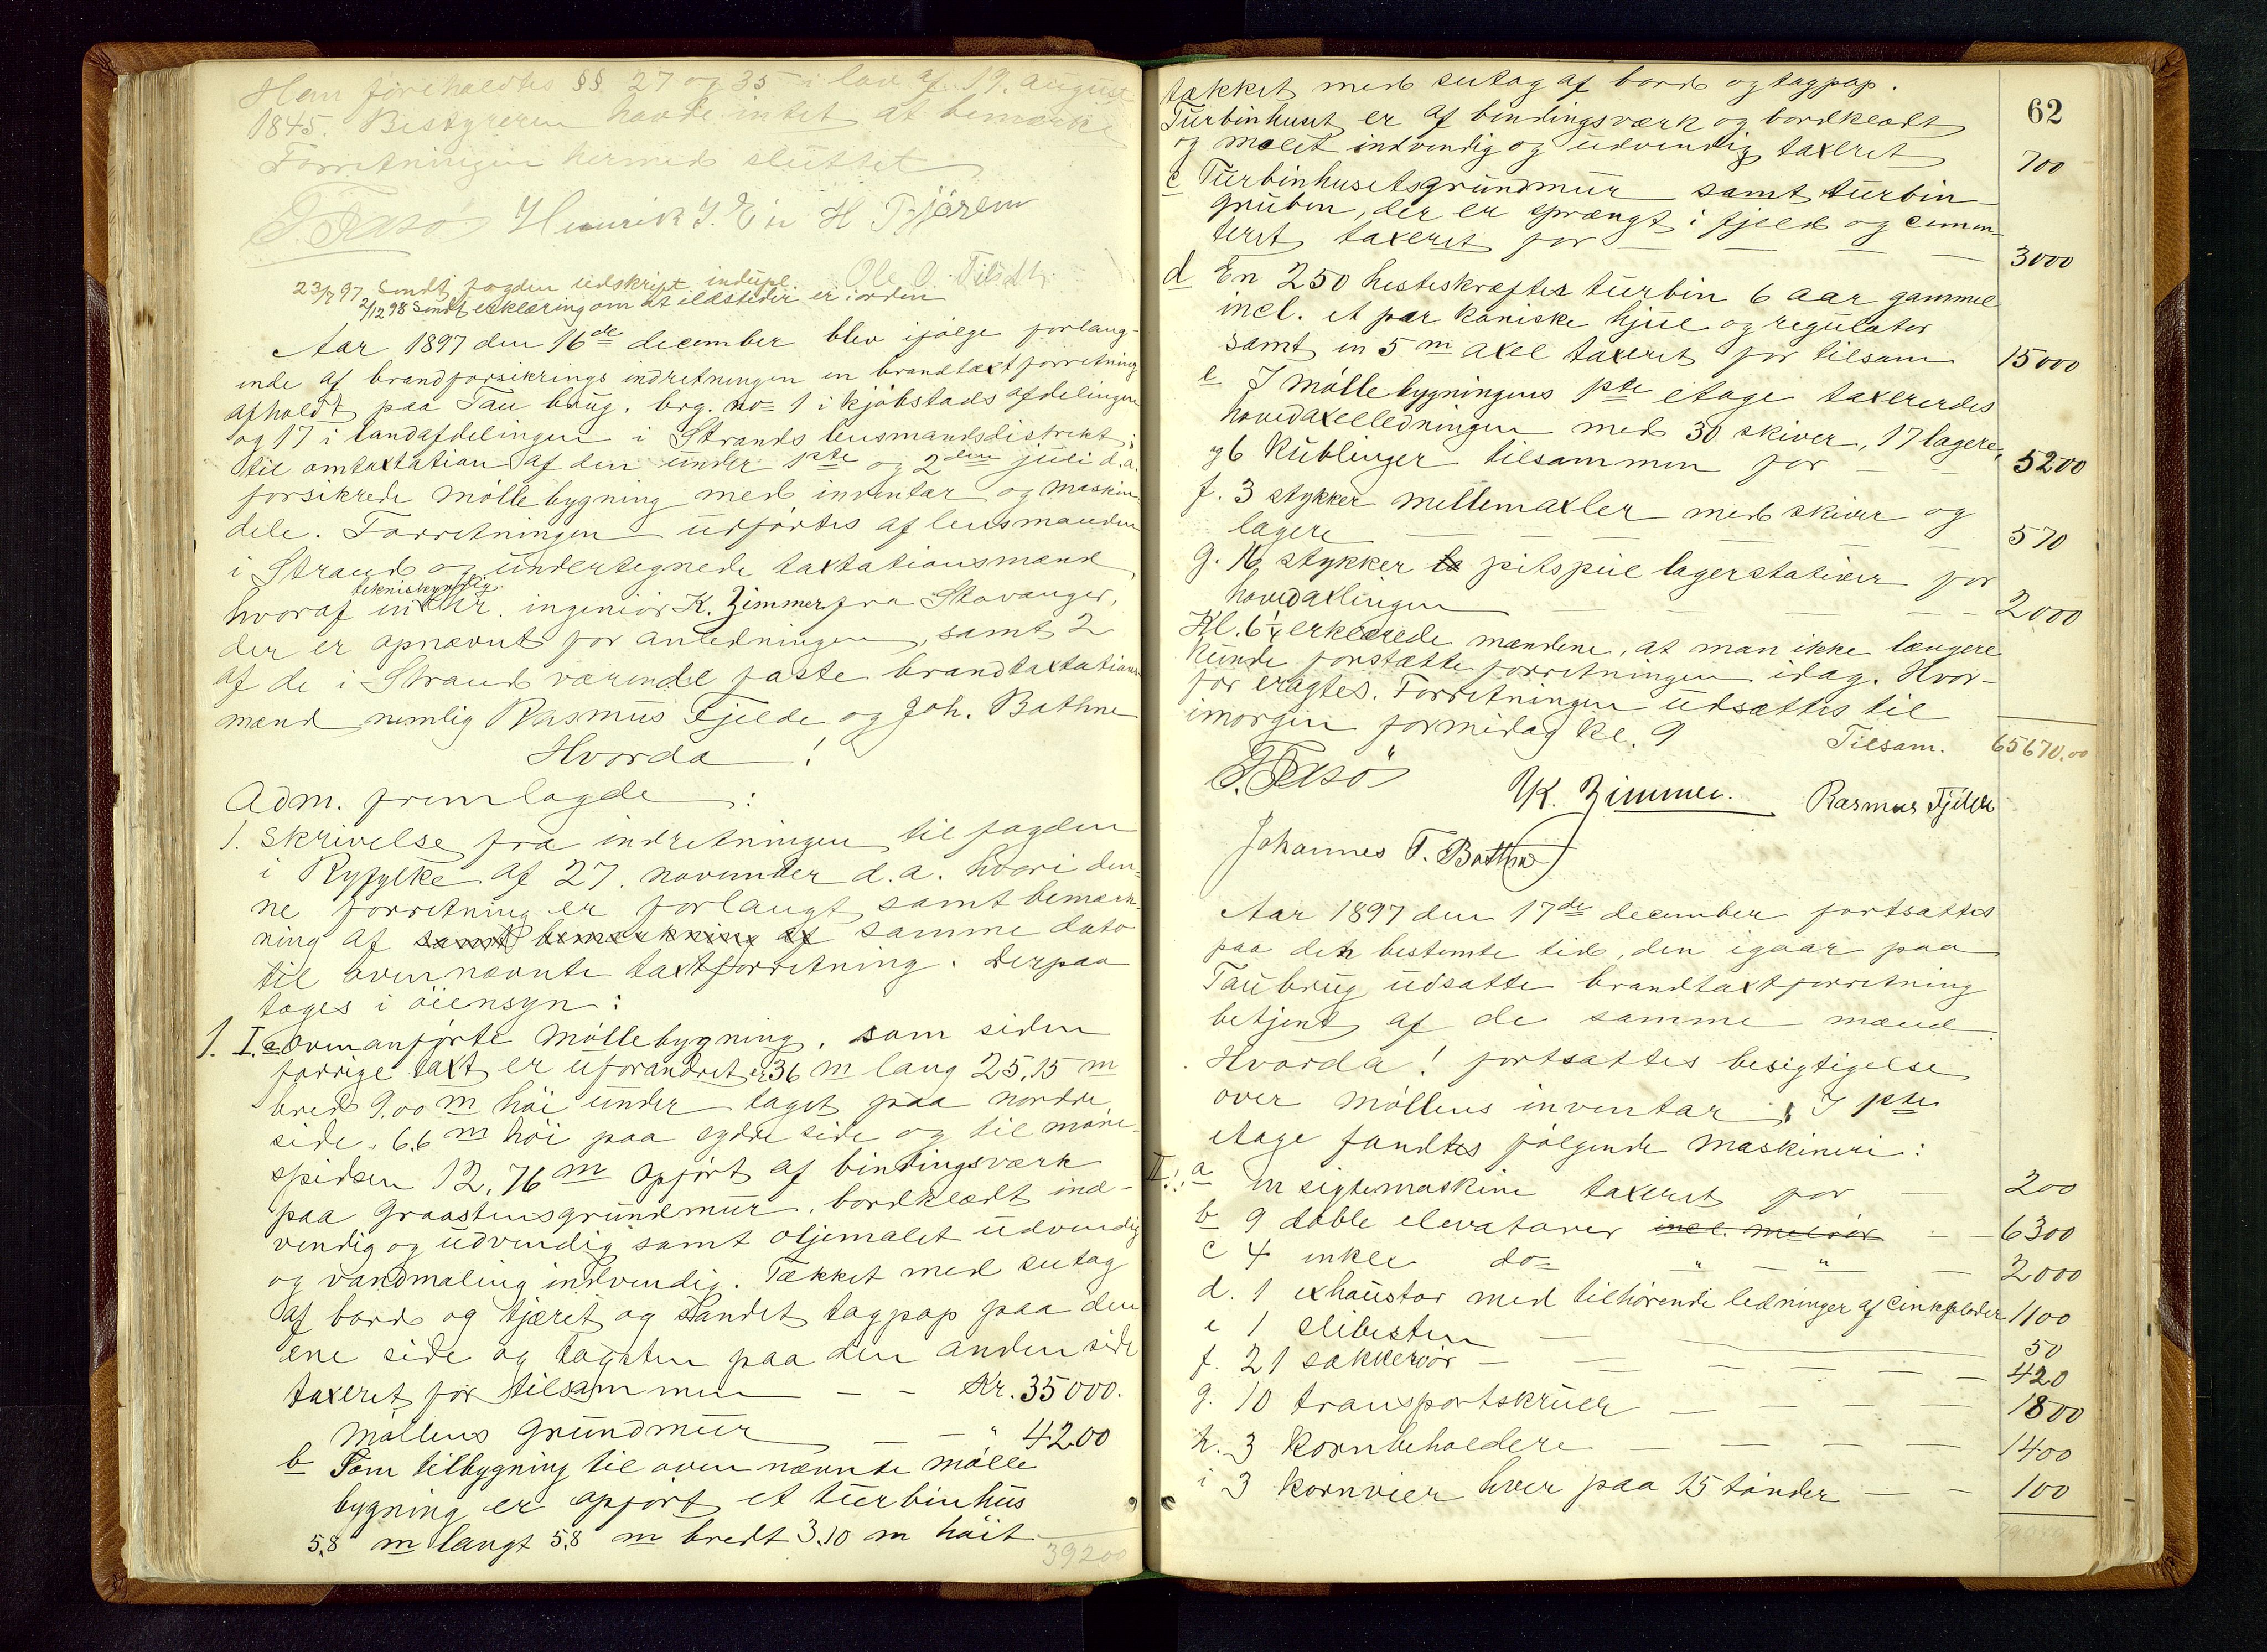 Han foreholdtes §§ 27 og 35 i lov af 19. august
1845. Bestyreren havde intet at bemærke
Forretningen hermed sluttet
Henrik J. H Bjøren
Ole O.
23/7 97 Sendt fogden udskrift in dupl.
2/12 98 Sendt erklæring om at ildsteder er i orden
Aar 1897 den 16de december blev ifølge forlang-
ende af brandforsikrings indretningen en brandtaxtforretning
afholdt paa Tau brug. brg. no= 1 i kjøbstads afdelingen
og 17 i landafdelingen i Strands lensmandsdistrikt;
til omtaxtation af den under 1ste og 2den juli d.a.
forsikrede møllebygning med inventar og maskin
dele. Forretningen udførtes af lensmanden
i Strand og undertegnede taxtationsmænd
hvoraf en tekniskkyndig hr. ingeniør K. Zimmer fra Stavanger,
der er opnævnt for anledningen, samt 2
af de i Strand værende faste brandtaxtations
mænd nemlig Rasmus Fjelde og Joh. Bathne
Hvorda !
Adm. fremlagde :
1. Skrivelse fra indretningen til fogden
i Ryfylke af 27. november d.a. hvori den-
ne forretning er forlangt samt bemærk-
ning af samt bemærkning af samme dato
til ovennævnte taxtforretning. Derpaa
toges i øiensyn :
1. I. a Ovenanførte møllebygning, som siden
forrige taxt er uforandret er 36 m lang 25,15 m
bred 9.00 m høi under taget paa nordre
side, 6.6 m høi paa sydre side og til møne-
spidsen 12,76 m Opført af bindingsværk
paa Graastensgrundmur, bordklædt ind-
vendig og udvendig samt oljemalet udvendig
og vandmaling indvendig. Tækket med sutag
af bord og tjæret og sandet tagpap paa den
ene side og tagsten paa den anden side
taxeret for tilsammen — - Kr. 35000.
Møllens Grundmur — — " 4200
b Som tilbygning til ovennævnte mølle
bygning er opført et turbinhus
5,8 m langt 5,8 m bredt 3,10 m høit
39200
62
tækket med sutag af bord og tagpap.
Turbinhuset er af bindingsværk og bordklædt
og malet indvendig og udvendig taxeret 700
c Turbinhusetsgrundmur samt turbin-
gruben, der er sprængt i fjeld og cemen-
teret taxeret for — — — 3000
d En 250 hesteskræfters turbin 6 aar gammel
incl. et par koniske hjul og regulator
samt en 5 m axel taxeret for tilsam 15000
e I møllebygningens 1ste etage taxererdes
hovedaxelledningen med 30 skiver, 17 lagere,
og 6 Kublinger tilsammen for — — 5200
f. 3 stykker mellemaxler med skiver og
lagere — — — — — 570
g. 16 stykker to pitspiil lagerstativer for
hovedaxlingen — — — — 2000
Kl. 6 1/4 erklærede mændene, at man ikke længere
kunde forstætte forretningen idag. Hvor-
for eragtes. Forretningen udsættes til
imorgin formidag kl. 9 Tilsam. 65670.00
K. Zimmer. Rasmus Fjelde
Johannes T. Bathne
Aar 1897 den 17de december fortsattes
paa den bestemte tid, den igaar paa
Tau brug udsatte brandtaxtforretning
betjent af de samme mænd.
Hvorda! fortsattes besigtigelse
over møllens inventar; I 1ste
etage fandtes følgende maskineri :
II.: a en sigtemaskine taxeret for — 200
b 9 doble elevatorer incl. melrør — — 6300
c 4 enkle do= " — " — 2000
d. 1 exhaustor med tilhørende ledninger af Cinkplader 1100
e 1 Slibesten — — 50
f. 21 sækkerør — — — — — 420
g. 10 transportskruer — — — — 1800
h. 3 Kornbeholdere — — — — 1400
i 3 Kornvier hver paa 15 tønder — — 100